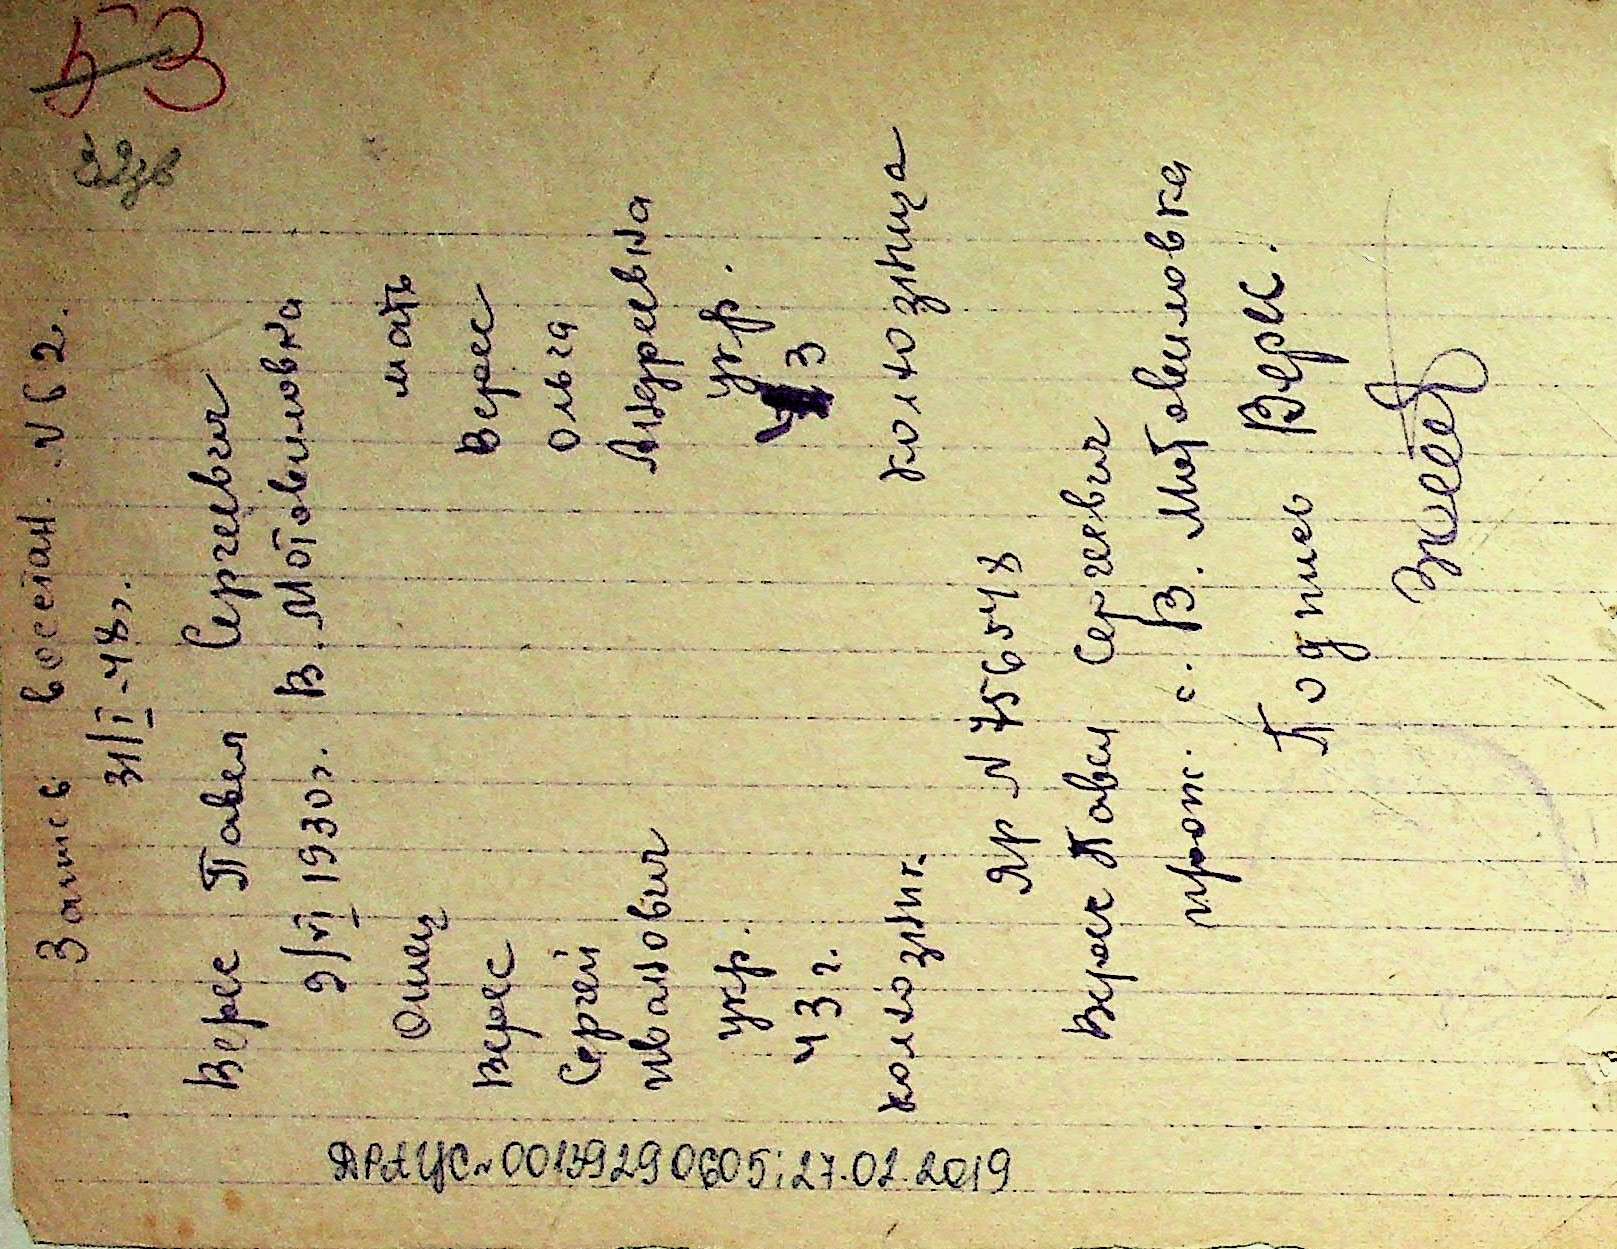 53
Запись восстан. № 62.
31/I-48г.
Верес Павел Сергеевич
9/VI 1930г. В. Мотовиловка
Отец мать
Верес Верес
Сергей Ольга
Иванович Андреевна
укр. укр.
43 г. 43
колхозник. колхозница
ЯР № 756548
Верес Павел Сергеевич
прож. с. В. Мотовиловка
Подпись Верес.
ДРАЦС № 00139290605; 27.02.2019